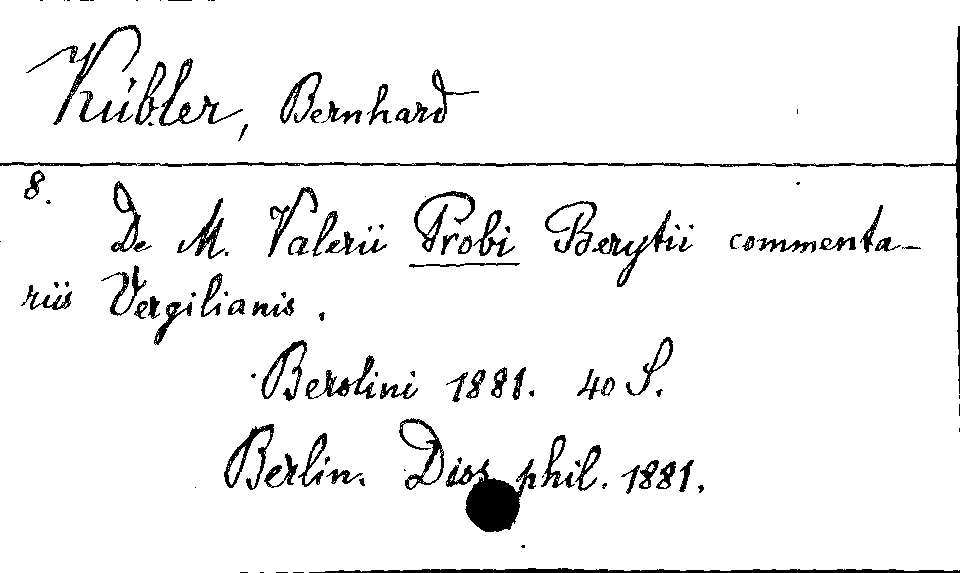 Kübler, Bernhard
8.
De M. Valerii Probi Berytii commenta-
riis Vergilianis.
Berolini 1881. 40 S.
Berlin. Diss. phil. 1881.